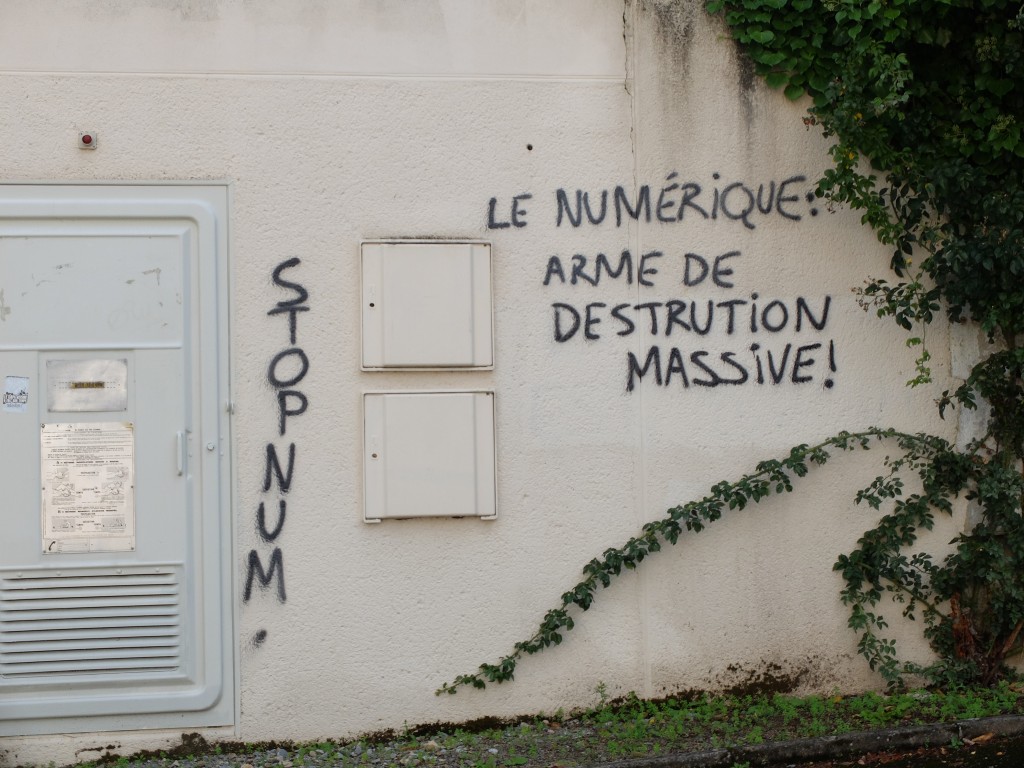 STOP NUM.
LE NUMÉRIQUE:
ARME DE
DESTRUTION
MASSIVE!